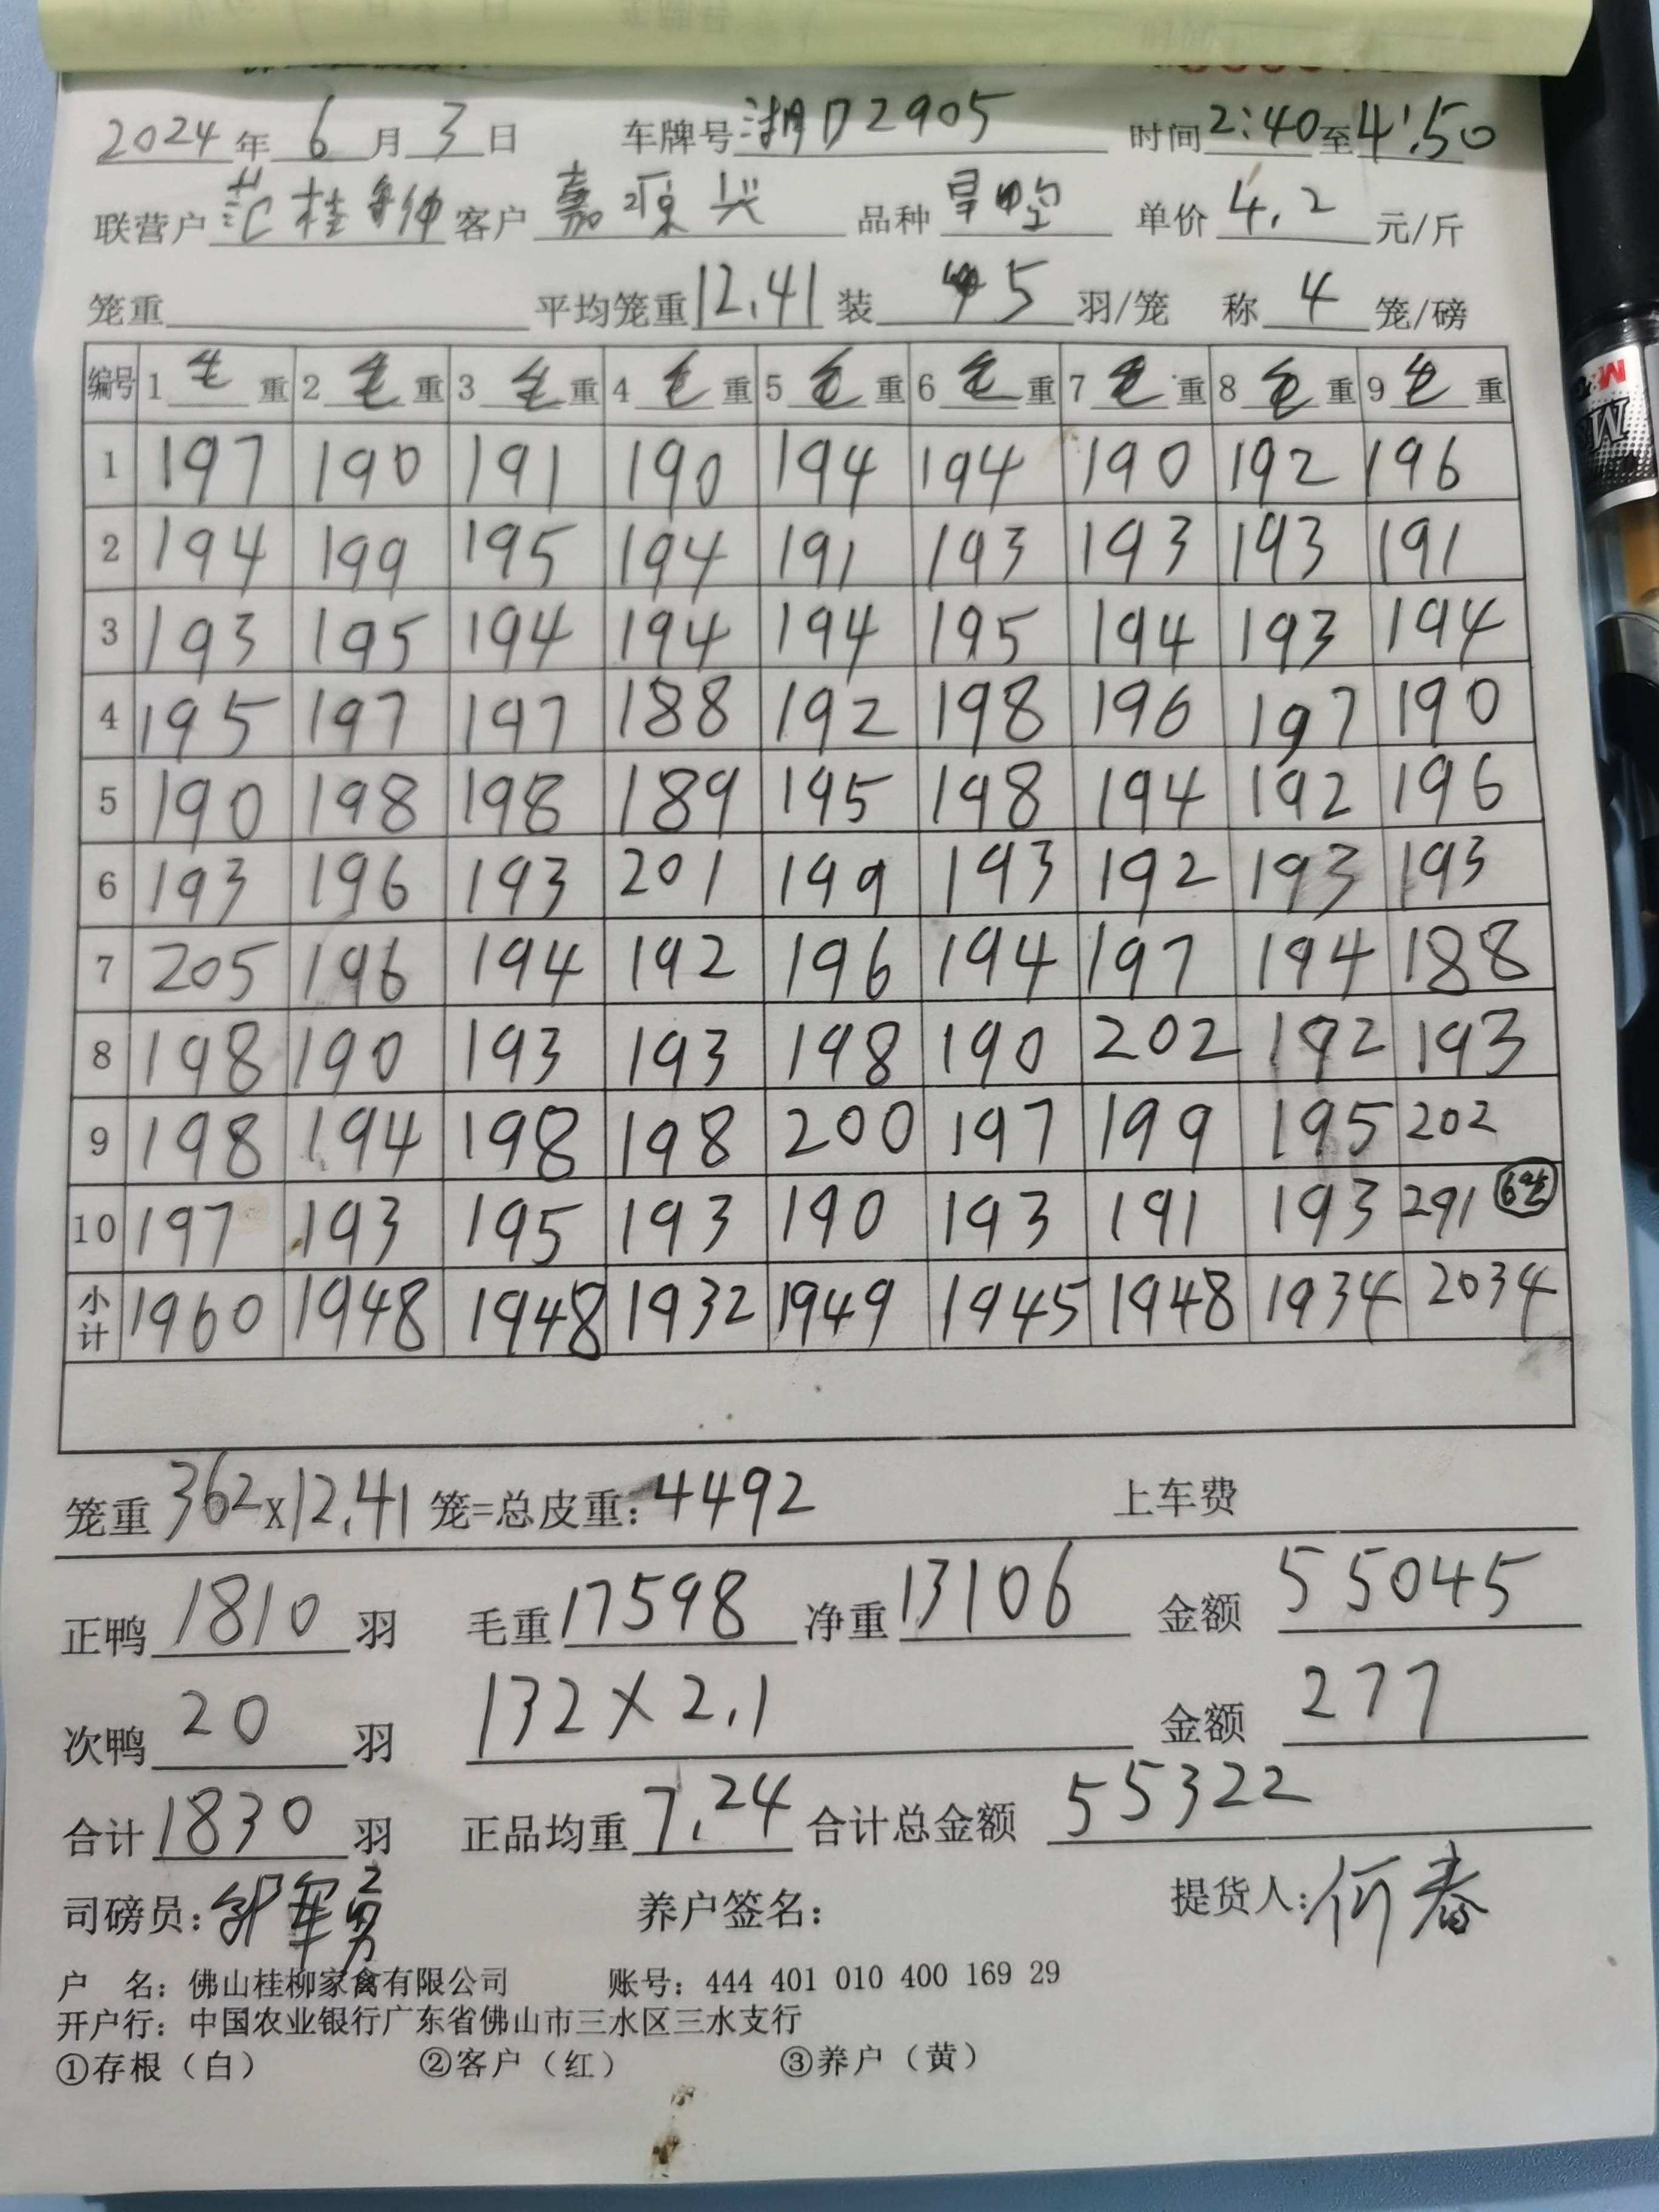 2024年6月3日 车牌号湘D2905 时间2:40至4:50
联营户范桂 客户嘉 兴 品种 单价4.2元/斤
笼重 平均笼重12.41 装5羽/笼 称4笼/磅
编号 1毛重 2毛重 3毛重 4毛重 5毛重 6毛重 7毛重 8毛重 9毛重
1 197 190 191 190 194 194 190 192 196
2 194 199 195 194 191 193 193 193 191
3 193 195 194 194 194 195 194 193 194
4 195 197 197 188 192 198 196 197 190
5 190 198 198 189 195 198 194 192 196
6 193 196 193 201 199 193 192 193 193
7 205 196 194 192 196 194 197 194 188
8 198 190 193 193 198 190 202 192 193
9 198 194 198 198 200 197 199 195 202
10 197 193 195 193 190 193 191 193 291 6笼
小计 1960 1948 1948 1932 1949 1945 1948 1934 2034
笼重362X12.41笼=总皮重:4492 上车费
正鸭1810羽 毛重17598 净重13106 金额55045
次鸭20羽 132×2.1 金额277
合计1830羽 正品均重7.24 合计总金额55322
司磅员:邹军勇 养户签名: 提货人:何春
户 名:佛山桂柳家禽有限公司 账号:444 401 010 400 169 29
开户行:中国农业银行广东省佛山市三水区三水支行
①存根（白） ②客户（红） ③养户（黄）